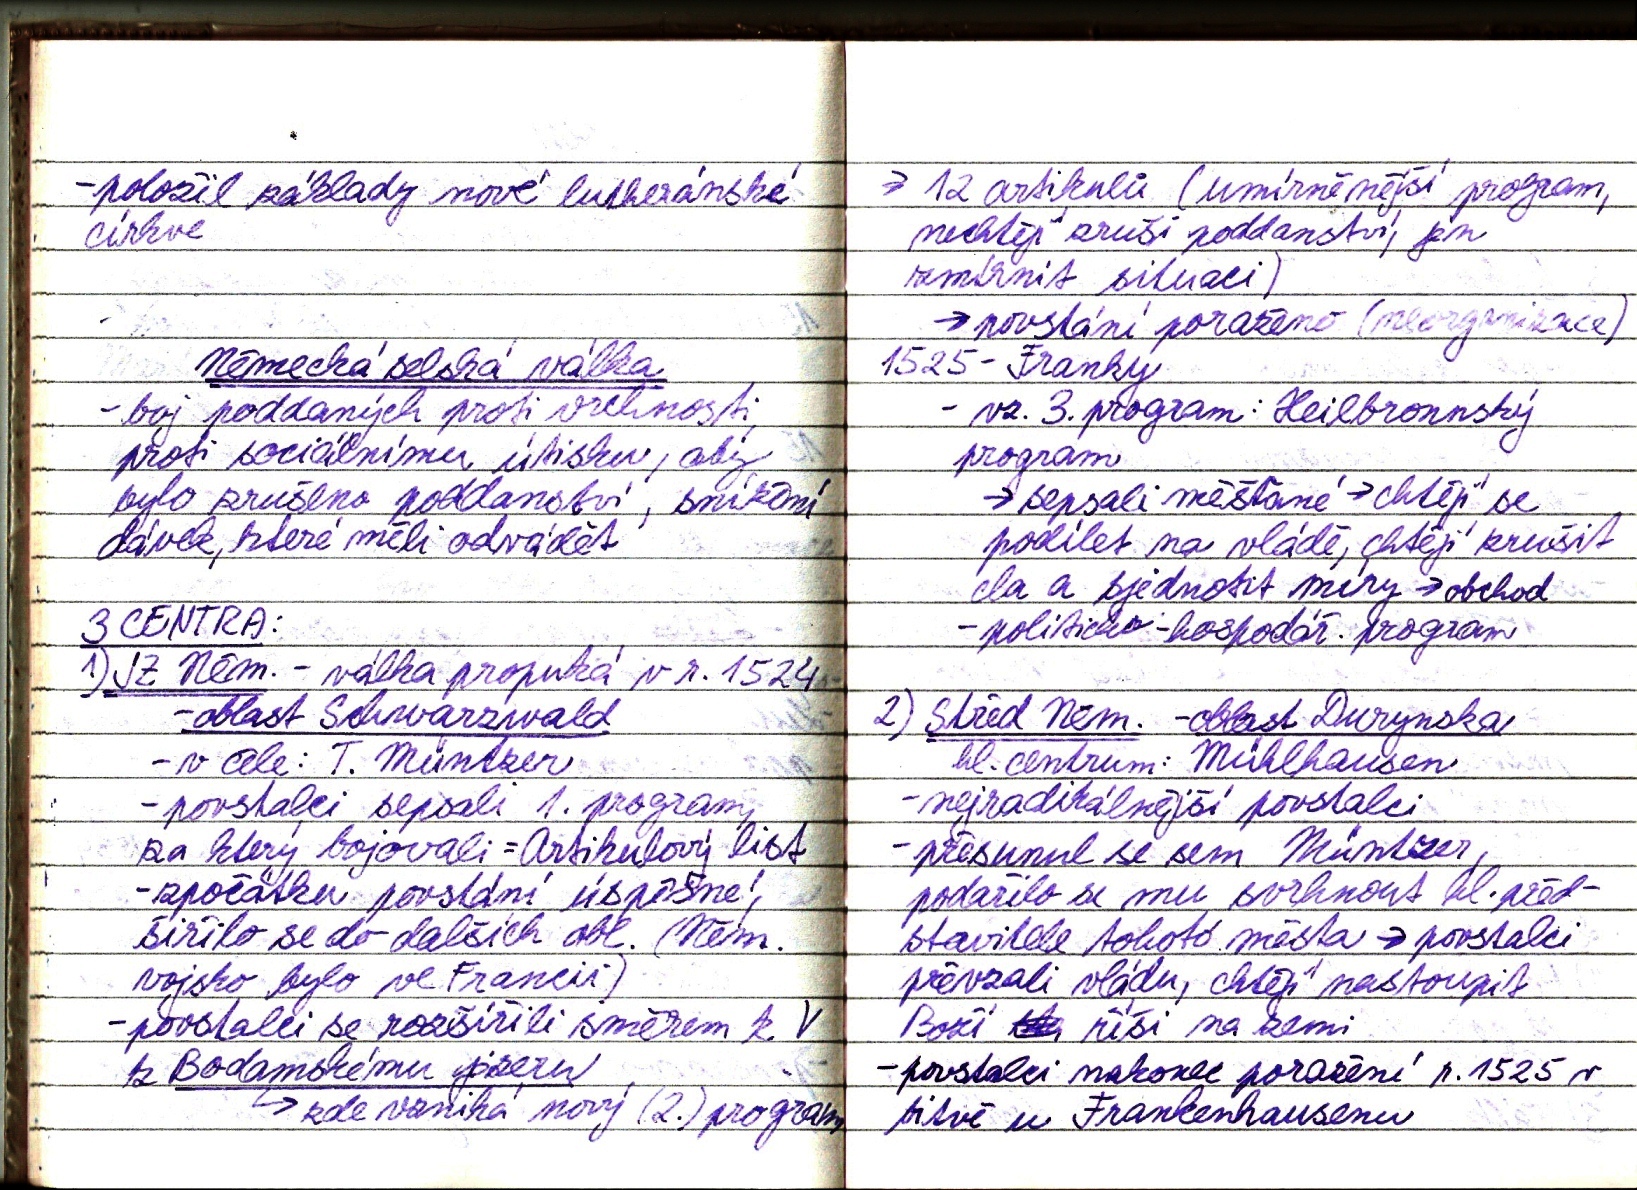 -položil základy nové lutheránské
církve
Německá selská válka
- boj poddaných proti vrchnosti,
proti sociálnímu útisku, aby
bylo zrušeno poddanství, snížení
dávek, které měli odvádět
3 CENTRA:
1) JZ Něm. - válka propuká v r. 1524
- oblast Schwarzwald
- v čele: T. Müntzer
- povstalci sepsali 1. program,
za který bojovali = Artikulový list
- zpočátku povstání úspěšné,
šířilo se do dalších obl. (Něm.
vojsko bylo ve Francii)
- povstalci se rozšířili směrem k V
k Bodamskému jezeru
→ zde vzniká nový (2.) program
→ 12 artikulů (umírněnější program,
nechtějí zruší poddanství, jen
zmírnit situaci)
→ povstání poraženo (neorganizace)
1525 - Franky
- vz. 3. program: Heilbronnský
program
→ sepsali měšťané → chtějí se
podílet na vládě, chtějí zrušit
cla a sjednotit míry → obchod
- politicko-hospodář. program
2) Střed Něm. - oblast Durynska
hl. centrum: Mühlhausen
- nejradikálnější povstalci
- přesunul se sem Müntzer,
podařilo se mu svrhnout hl. před-
stavitele tohoto města → povstalci
převzali vládu, chtějí nastoupit
Boží říši na zemi
- povstalci nakonec poraženi r. 1525 v
bitvě u Frankenhausenu